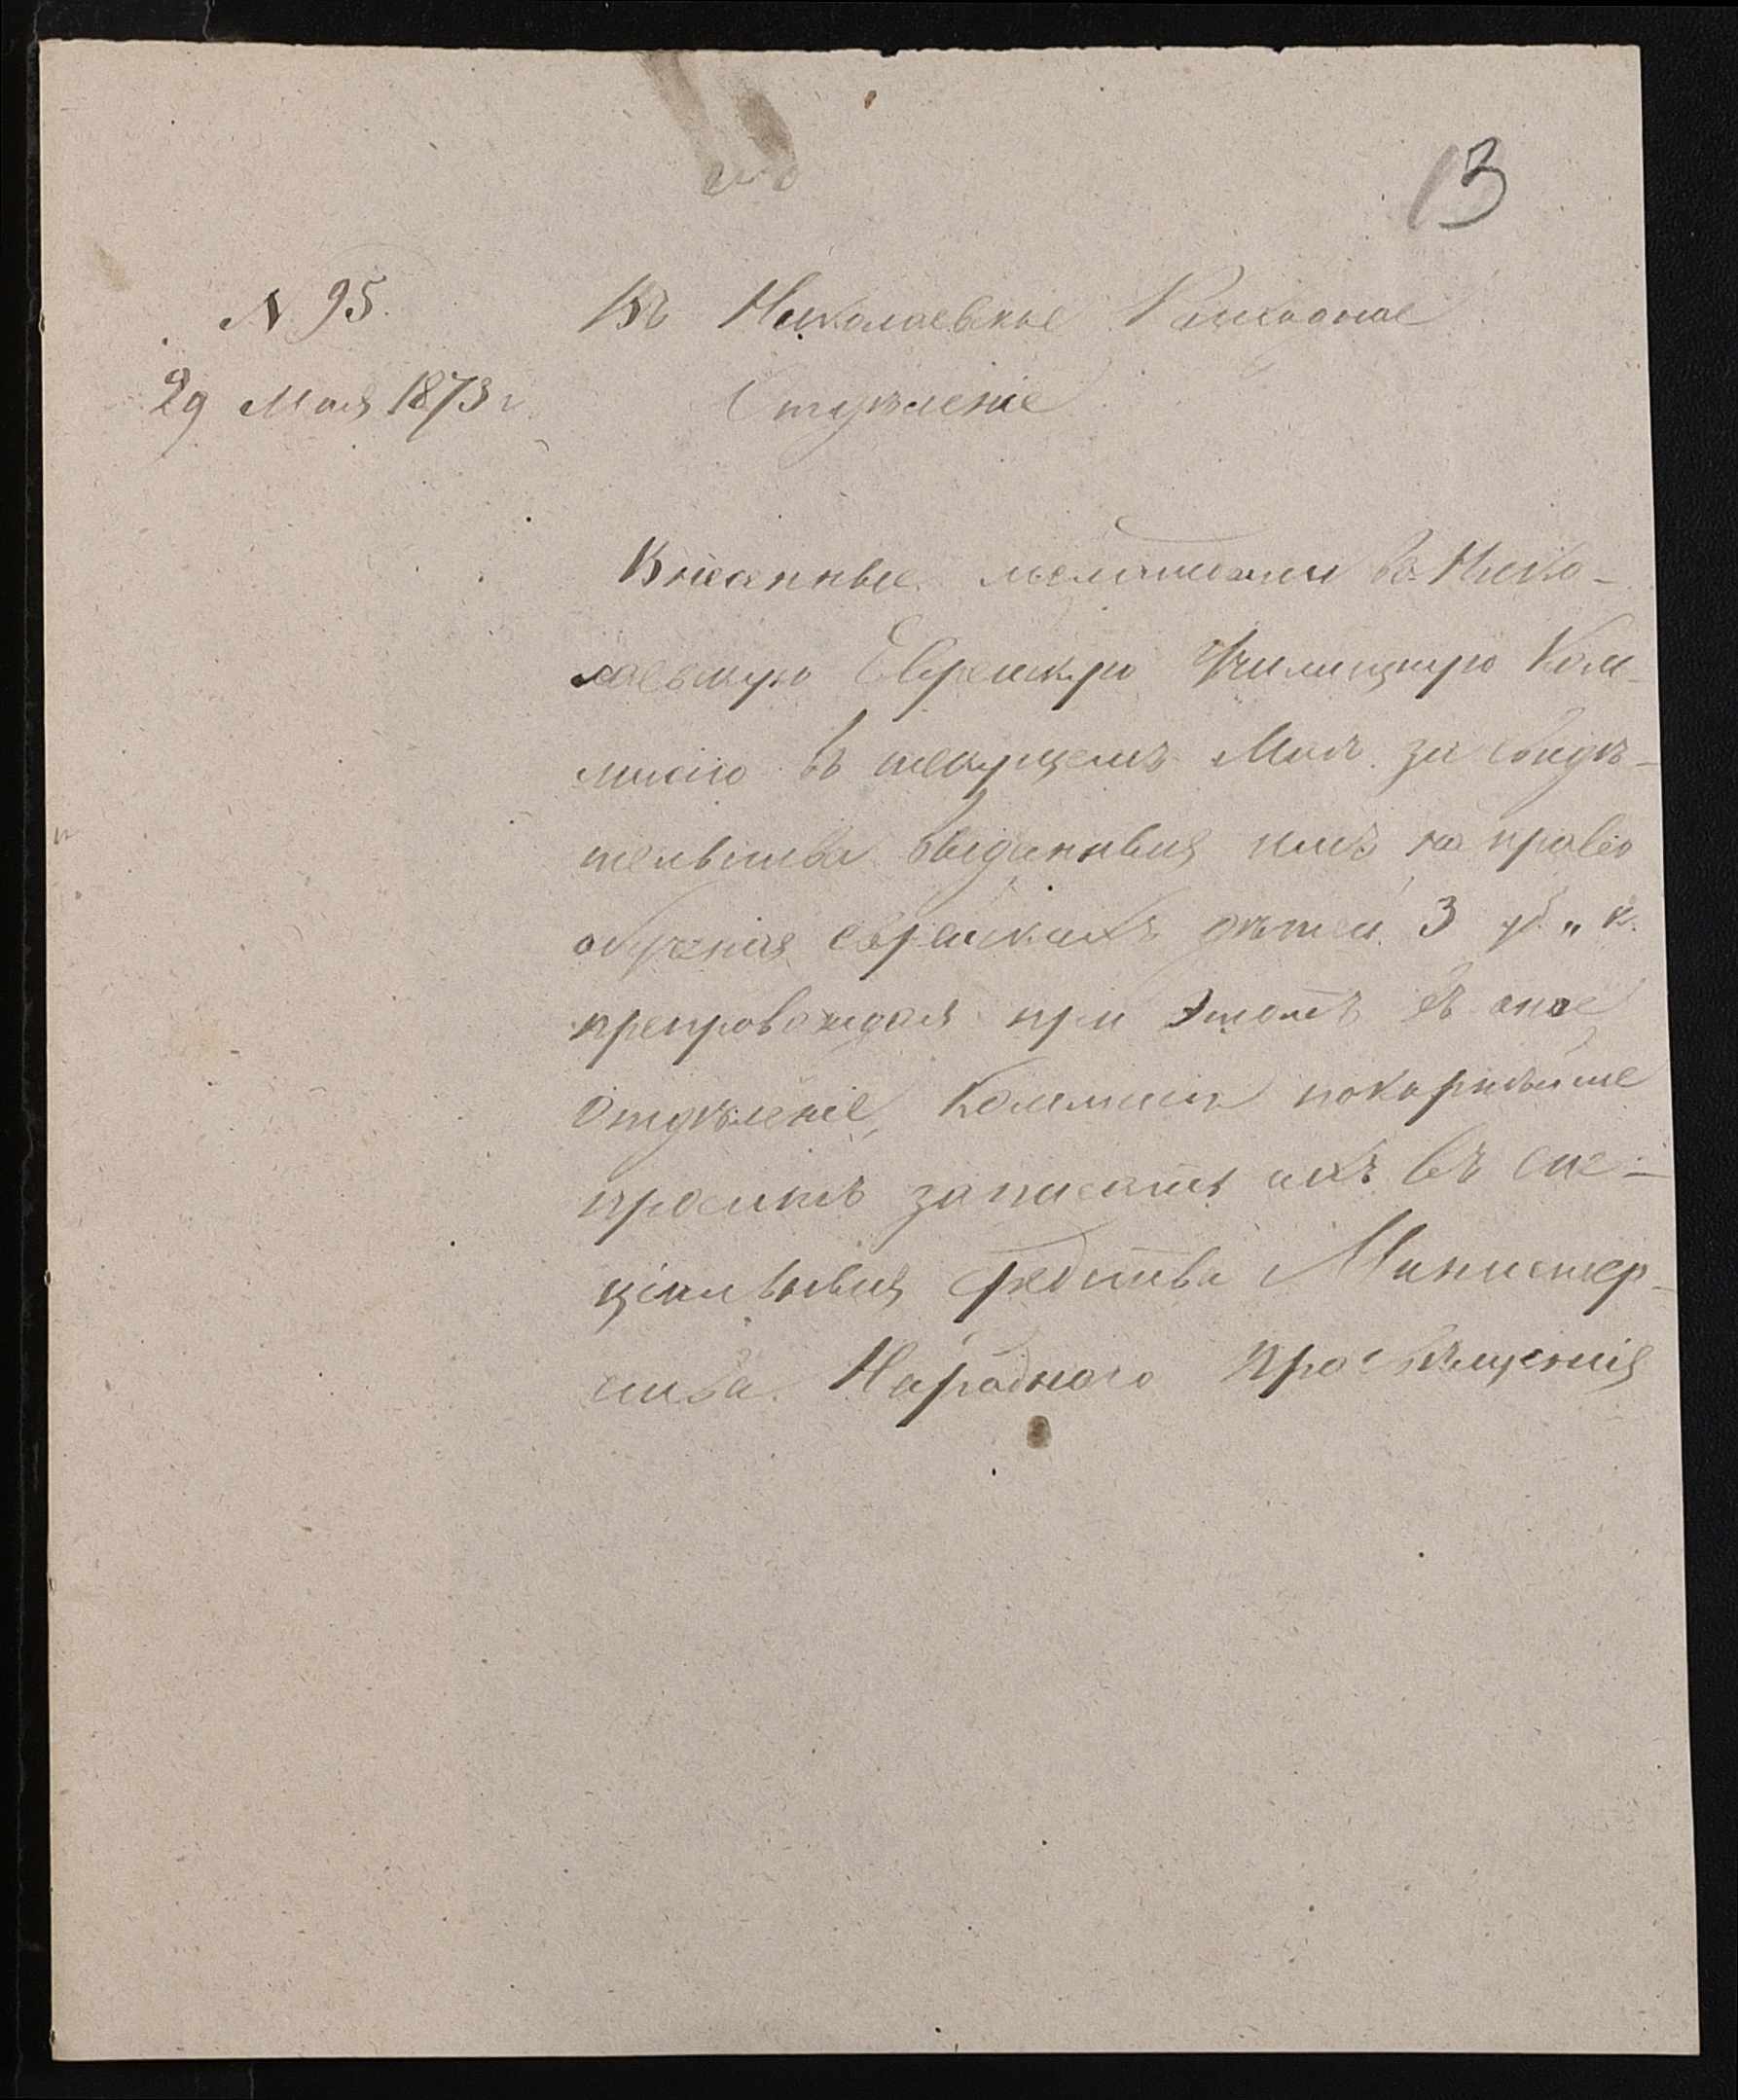 13
N 95.
29 Мая 1873 г.
Въ Николаевское Расходное
Отдѣленіе
Внесенные меламедами въ Нико-
лаевскую Еврейскую Училищную Ком-
мисію въ текущемъ Маѣ за свидѣ-
тельства выданныя имъ на право
обученія еврейскихъ дѣтей 3 рб. „ к.
препровождая при этомъ въ оное
Отдѣленіе, Коммисія покорнѣйше
проситъ записать ихъ въ спе-
ціальныя средства Министер-
ства Народного Просвѣщенія